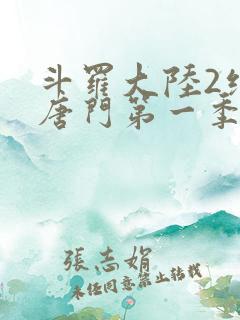 斗羅大陸2
唐門第一季
張志娟
未经同意禁止转载